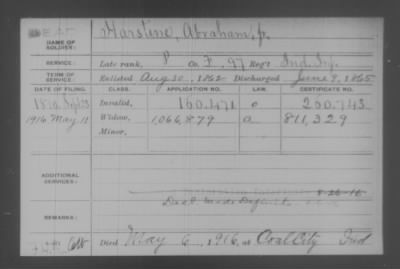 NAME OF SOLDIER: Harstine, Abraham, jr.
SERVICE: Late rank, P Co. F, 97 Reg't Ind. Inf.
TERM OF SERVICE: Enlisted Aug 20, 1862 Discharged June 9, 1865
DATE OF FILING. CLASS. APPLICATION NO. LAW. CERTIFICATE NO.
Invalid, 160.471 260.743
1916 May 11 Widow, 1,066,879 811,329
Minor,
ADDITIONAL SERVICES:
8-26-16
REMARKS:
Died May 6, 1916, at Coal City Ind